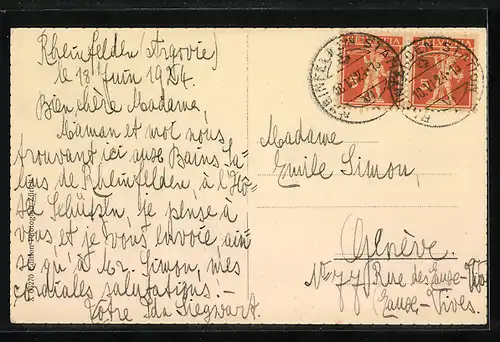 Rheinfelden (Argovie)
le 18 Juin 1924.
Bien chère Madame,
Maman et moi nous
trouvant ici aux Bains Sa-
lins de Rheinfelden, à l'Hô-
tel Schützen, je pense à
vous et je vous envoie, ain-
si qu'à Mr. Simon, mes
cordiales salutations! –
Votre Ida Siegwart.
HELVETIA
HELVETIA
RHEINFELDEN STADT
Madame
Emile Simon,
Genève.
No 77, Rue des Eaux-Vives
Eaux-Vives.